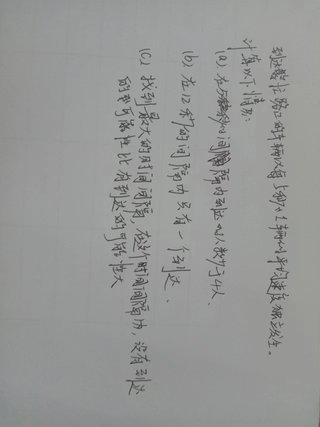 到达繁忙路口的车辆以每5秒钟1辆的平均速度独立发生。
计算以下情况:
(a) 在秒的间隔内到达的人数少于4人
(b) 在12秒的间隔内只有一个到达.
(c) 找到最大的时间间隔,在这个时间间隔内,没有到达
的可能性比有到达的可能性大